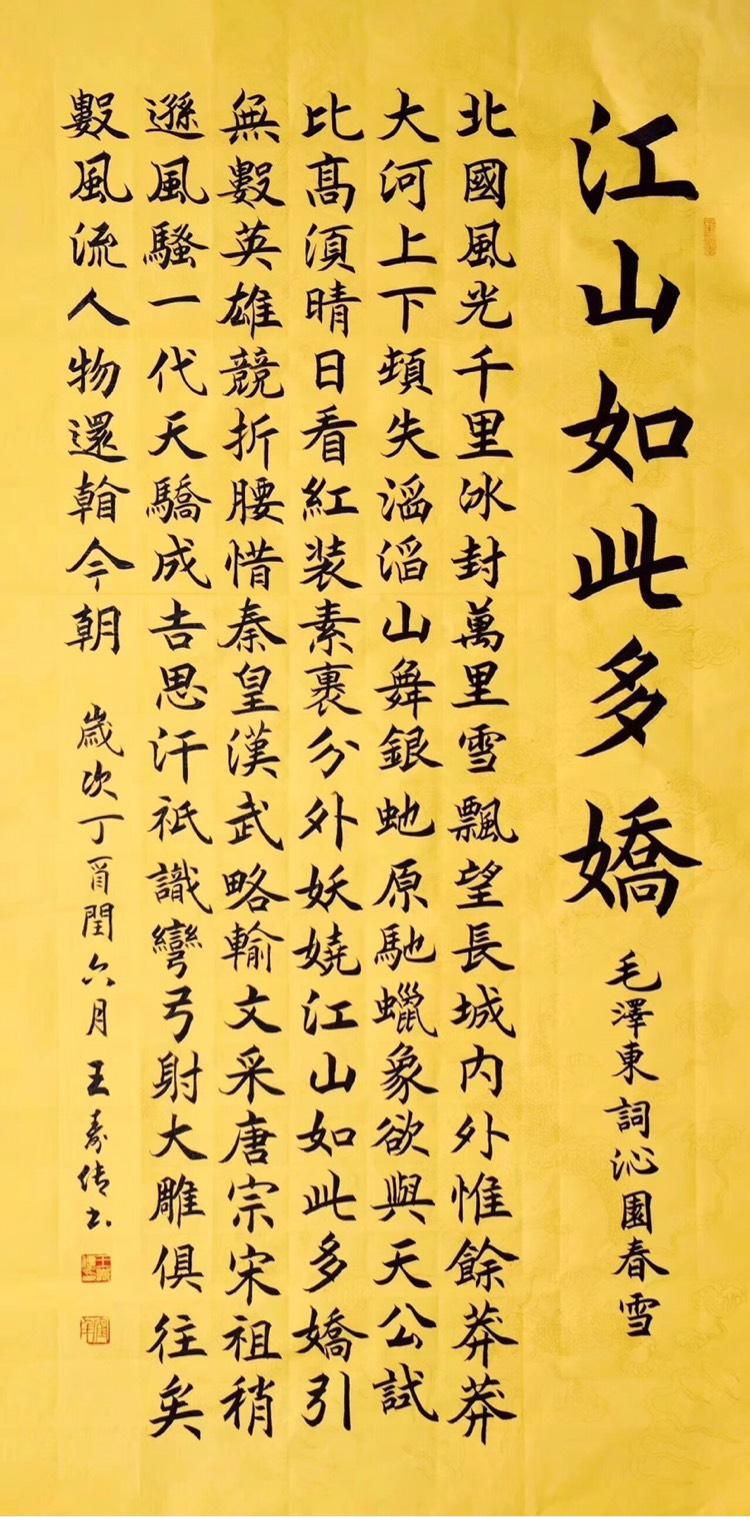 江山如此多嬌
毛澤東詞沁園春雪
北國風光千里冰封萬里雪飄望長城內外惟餘莽莽
大河上下頓失滔滔山舞銀虵原馳蠟象欲與天公試
比高須晴日看紅装素裹分外妖嬈江山如此多嬌引
無數英雄競折腰惜秦皇漢武略輸文采唐宗宋祖稍
遜風騷一代天驕成吉思汗祇識彎弓射大雕俱往矣
數風流人物還看今朝
歲次丁酉閏六月王壽倩书